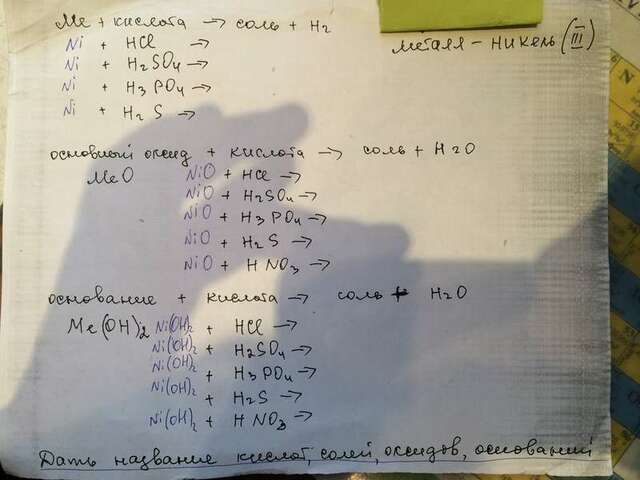 Me + кислота → соль + H2
металл – никель (III)
Ni + HCl →
Ni + H2SO4 →
Ni + H3PO4 →
Ni + H2S →
основный оксид + кислота → соль + H2O
MeO NiO + HCl →
NiO + H2SO4 →
NiO + H3PO4 →
NiO + H2S →
NiO + HNO3 →
основание + кислота → соль + H2O
Me(OH)2 Ni(OH)2 + HCl →
Ni(OH)2 + H2SO4 →
Ni(OH)2 + H3PO4 →
Ni(OH)2 + H2S →
Ni(OH)2 + HNO3 →
Дать название кислот, солей, оксидов, оснований